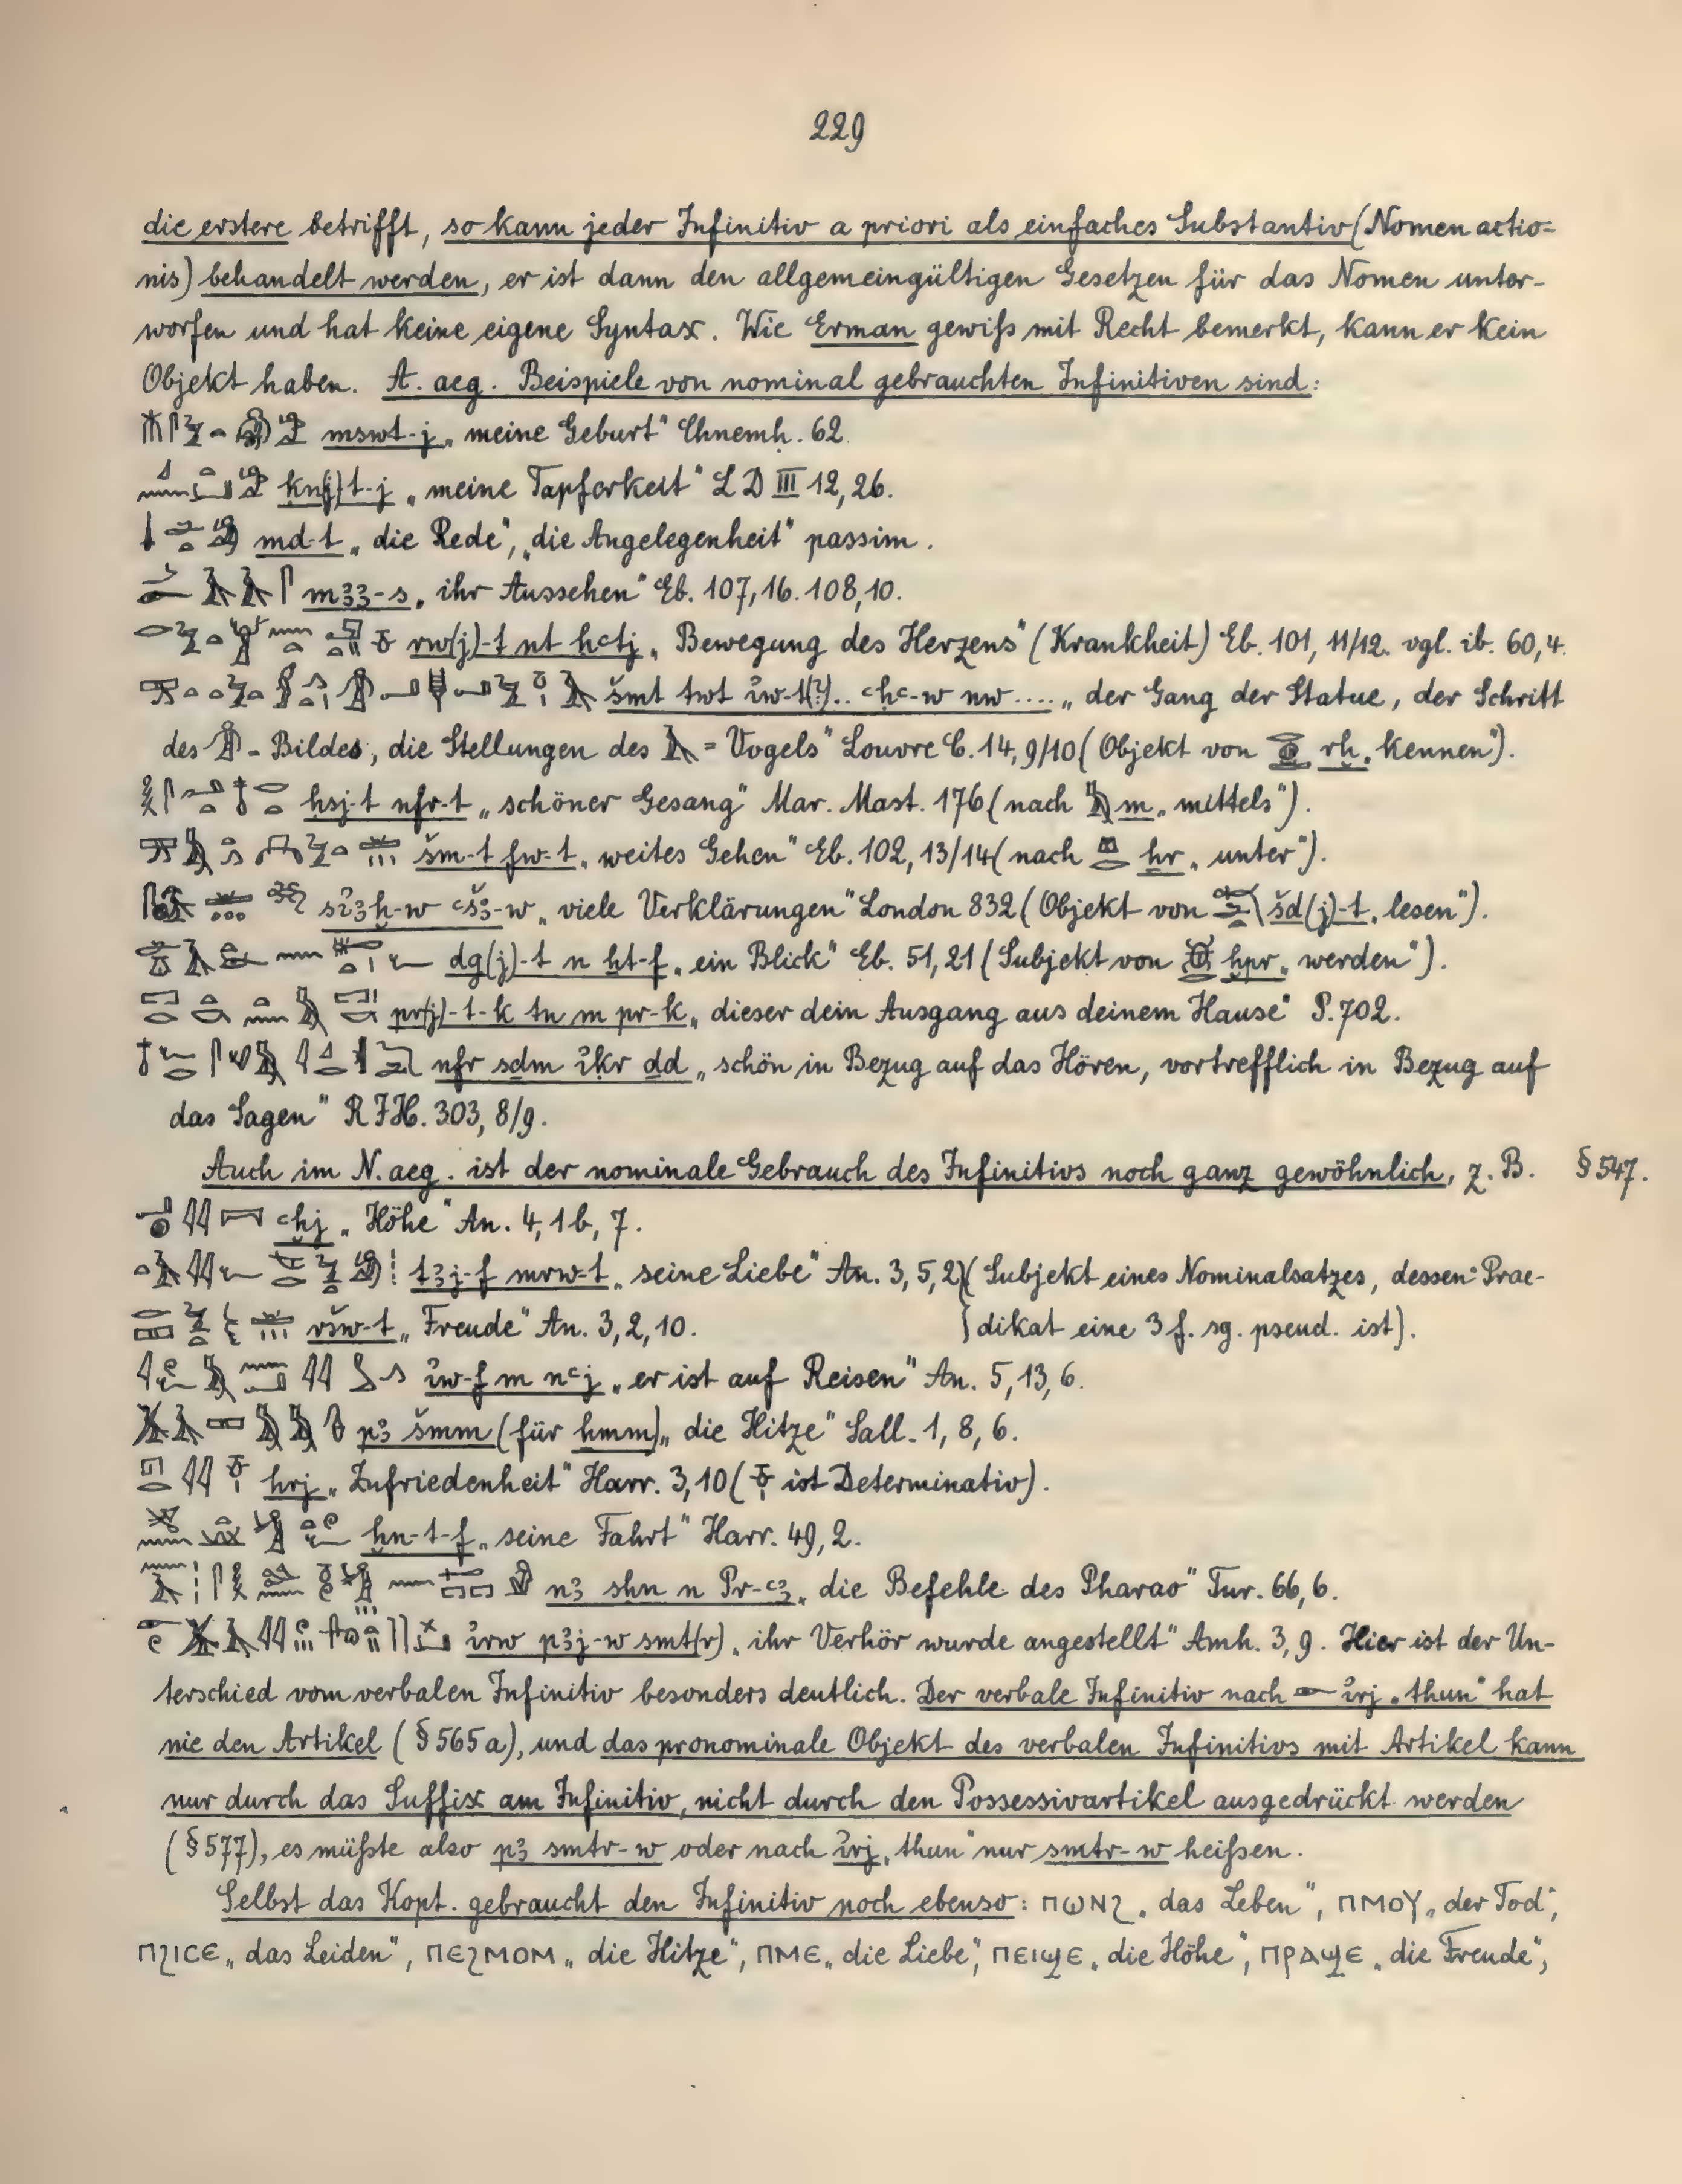 229
die erstere betrifft, so kann jeder Infinitiv a priori als einfaches Substantiv (Nomen actio=
nis) behandelt werden, er ist dann den allgemeingültigen Gesetzen für das Nomen unter-
worfen und hat keine eigene Syntax. Wie Erman gewiß mit Recht bemerkt, kann er kein
Objekt haben. A. aeg. Beispiele von nominal gebrauchten Infinitiven sind:
mswt-j „meine Geburt" Chnemh. 62.
ḳn(j)t-j „meine Tapferkeit" LD III 12, 26.
md-t „die Rede", „die Angelegenheit" passim.
mꜣꜣ-s „ihr Aussehen" Eb. 107, 16. 108, 10.
rw(j)-t nt ḥꜥtj „Bewegung des Herzens" (Krankheit) Eb. 101, 11/12. vgl. ib. 60, 4.
šmt twt ỉw-t(?).. ꜥḥꜥ-w nw .... „der Gang der Statue, der Schritt
des - Bildes, die Stellungen des = Vogels" Louvre C. 14, 9/10 (Objekt von rḫ „kennen").
ḥsj-t nfr-t „schöner Gesang" Mar. Mast. 176 (nach m „mittels").
šm-t fw-t „weites Gehen" Eb. 102, 13/14 (nach ḫr „unter").
sỉꜣḫ-w ꜥšꜣ-w „viele Verklärungen" London 832 (Objekt von šd(j)-t „lesen").
dg(j)-t n ḫt-f „ein Blick" Eb. 51, 21 (Subjekt von ḫpr „werden").
pr(j)-t-k tn m pr-k „dieser dein Ausgang aus deinem Hause" P. 702.
nfr sḏm ỉḳr ḏd „schön in Bezug auf das Hören, vortrefflich in Bezug auf
das Sagen" RIH. 303, 8/9.
Auch im N. aeg. ist der nominale Gebrauch des Infinitivs noch ganz gewöhnlich, z. B. § 547.
ꜥḫj „Höhe" An. 4, 1b, 7.
tꜣj-f mrw-t „seine Liebe" An. 3, 5, 2 (Subjekt eines Nominalsatzes, dessen Prae-
ršw-t „Freude" An. 3, 2, 10. dikat eine 3 f. sg. pseud. ist).
ỉw-f m nꜥj „er ist auf Reisen" An. 5, 13, 6.
pꜣ šmm (für ḫmm) „die Hitze" Sall. 1, 8, 6.
hrj „Zufriedenheit" Harr. 3, 10 ( ist Determinativ).
ḫn-t-f „seine Fahrt" Harr. 49, 2.
nꜣ sḥn n Pr-ꜥꜣ „die Befehle des Pharao" Tur. 66, 6.
ỉrw pꜣj-w smt(r) „ihr Verhör wurde angestellt" Amh. 3, 9. Hier ist der Un-
terschied vom verbalen Infinitiv besonders deutlich. Der verbale Infinitiv nach ỉrj „thun" hat
nie den Artikel (§ 565a), und das pronominale Objekt des verbalen Infinitivs mit Artikel kann
nur durch das Suffix am Infinitiv, nicht durch den Possessivartikel ausgedrückt werden
(§ 577), es müßte also pꜣ smtr-w oder nach ỉrj „thun" nur smtr-w heißen.
Selbst das Kopt. gebraucht den Infinitiv noch ebenso: ⲡⲱⲛϩ „das Leben", ⲡⲙⲟⲩ „der Tod",
ⲡϩⲓⲥⲉ „das Leiden", ⲡⲉϩⲙⲟⲙ „die Hitze", ⲡⲙⲉ „die Liebe", ⲡⲉⲓϣⲉ „die Höhe", ⲡⲣⲁϣⲉ „die Freude",